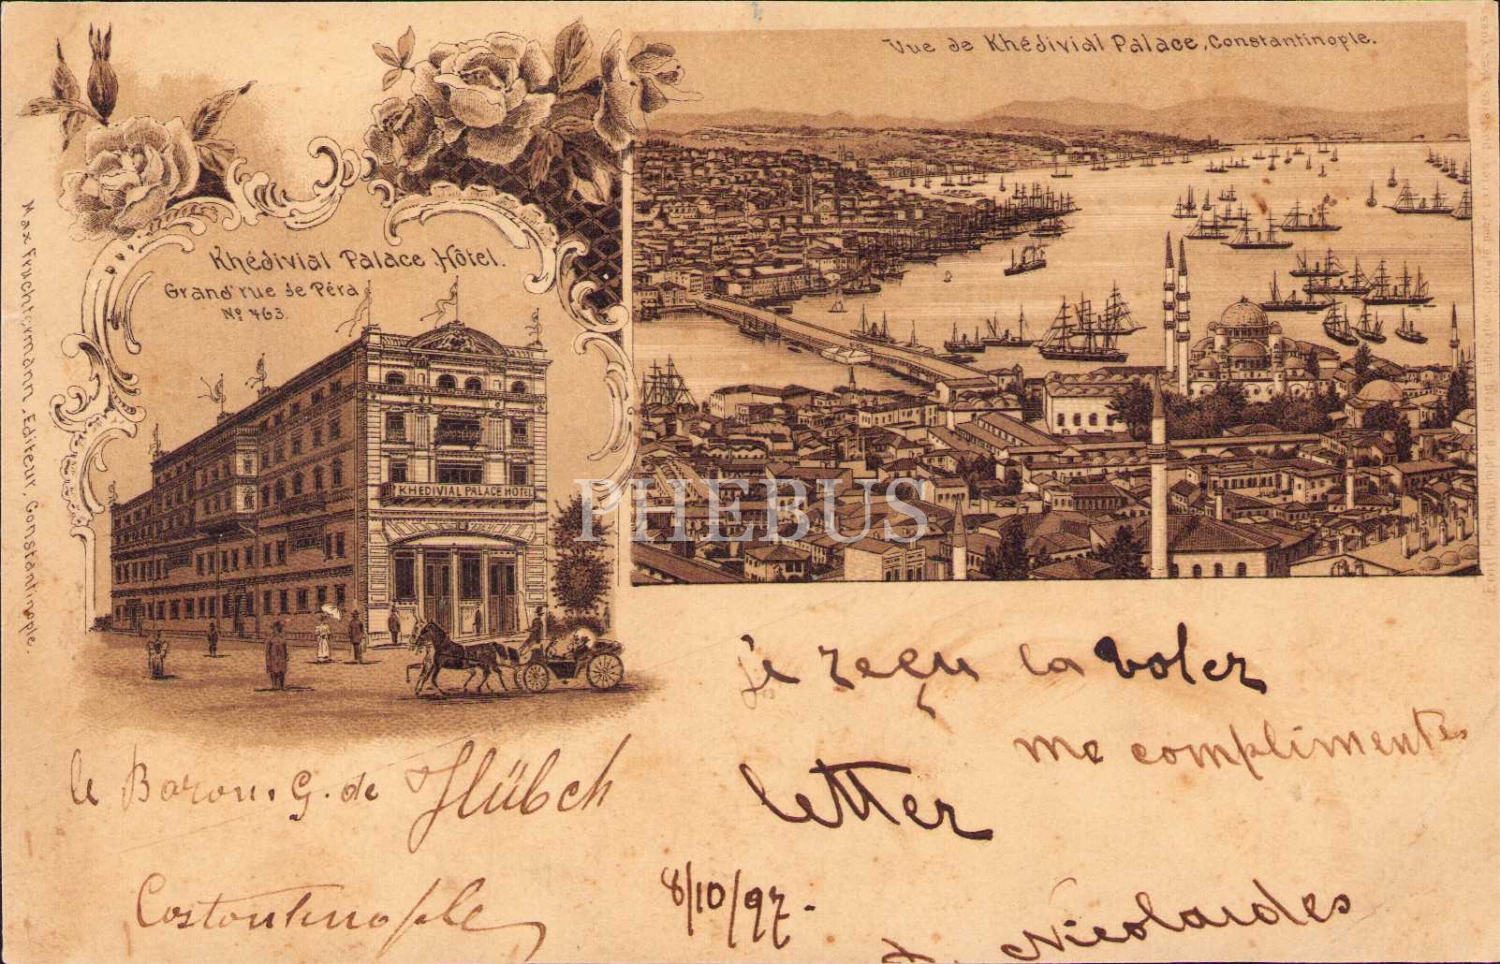 Vue de Khédivial Palace, Constantinople.
Khédivial Palace Hôtel.
Grand' rue de Péra
Nº 463.
KHEDIVIAL PALACE HOTEL
Max Fruchtermann, Editeur, Constantinople.
PHEBUS
je reçu la voler
me complimentes
letter
le Baron. G. de Hübsch
Costantinople
8/10/97.
Nicolaides